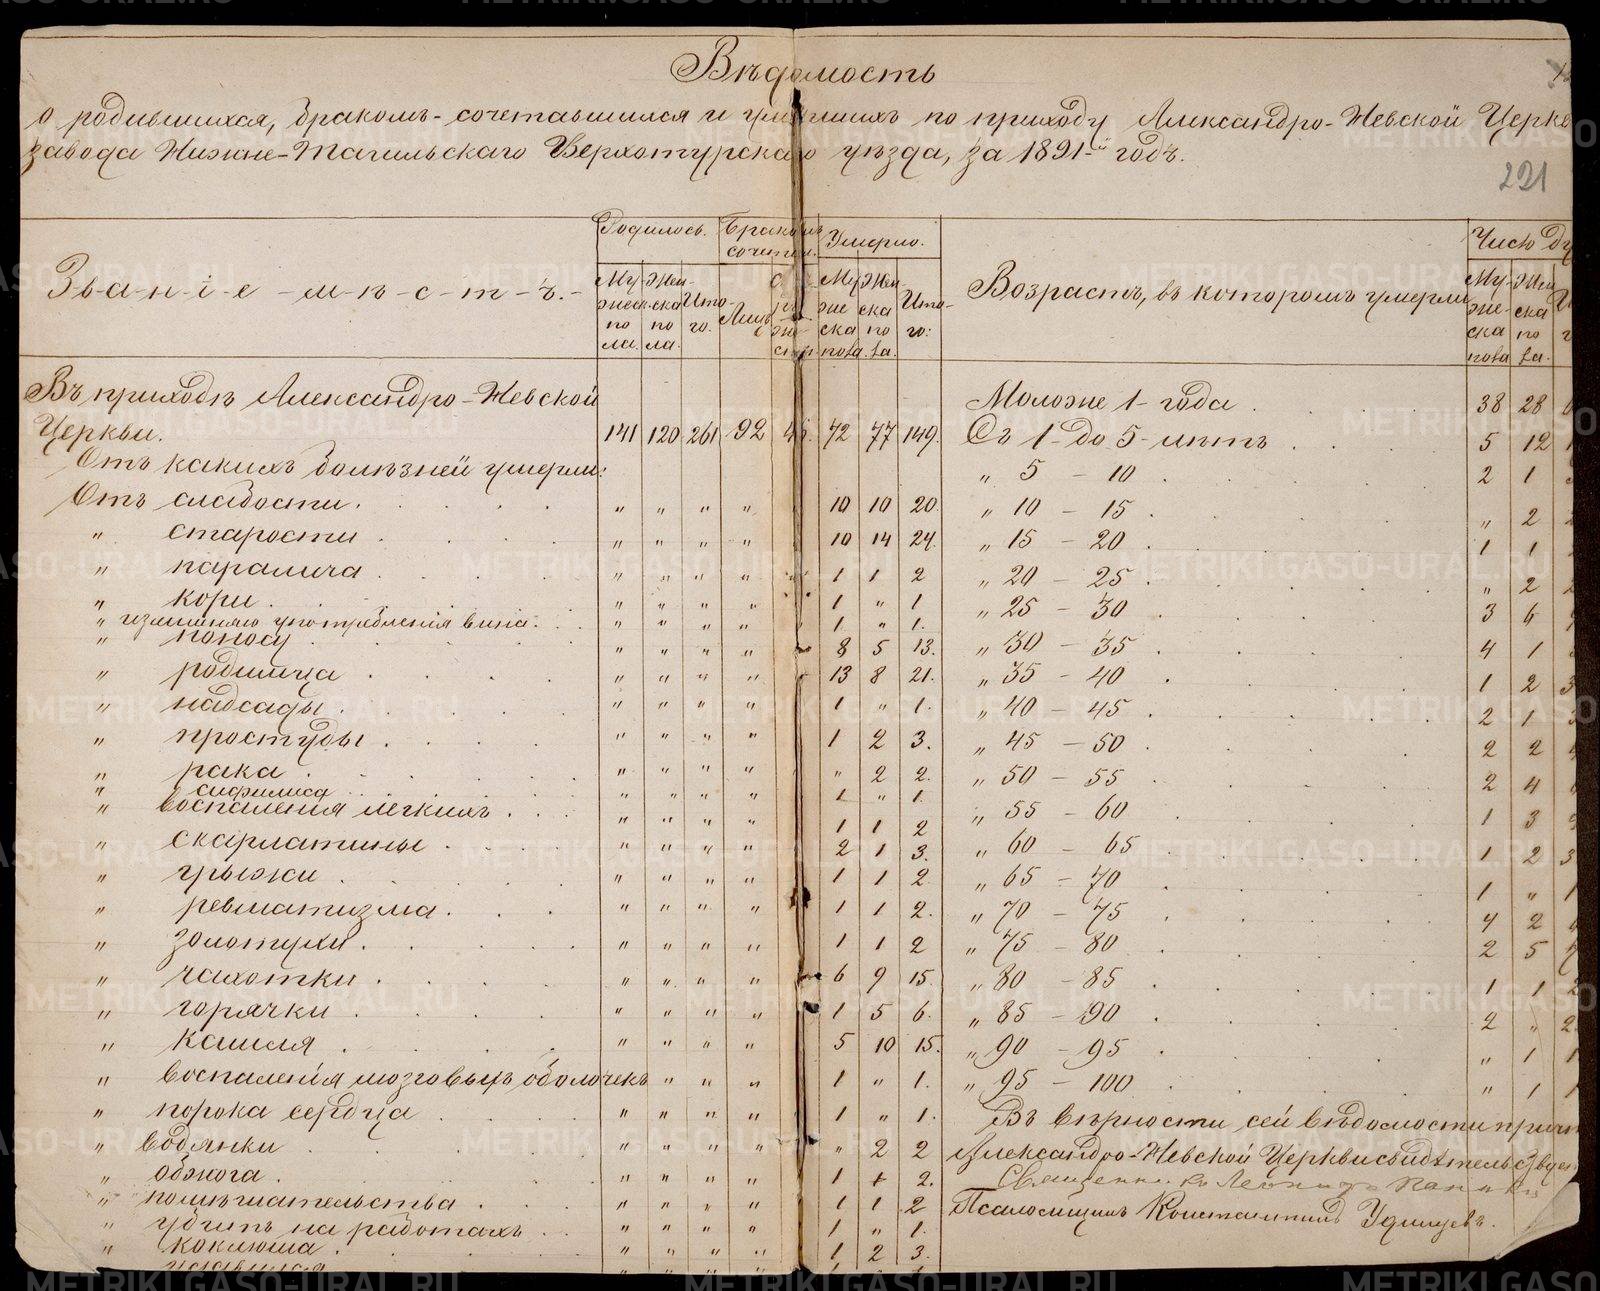 Вѣдомость
о родившихся, бракомъ-сочетавшихся и умершихъ по приходу Александро-Невской Церкв
завода Нижне-Тагильскаго Верхотурскаго уѣзда, за 1891-й годъ.
221
Званіе мѣстъ.
Родилось.
Мужеска пола.
Женска пола.
Итого.
Бракомъ сочетал.
Лицъ
Умерло.
Мужеска пола.
Женска пола.
Итого:
Возрастъ, въ которомъ умерли
Число ду
Мужеска пола
Женска пола.
Въ приходѣ Александро-Невской
Церкви. 141 120 261 92 46. 72 77 149.
Отъ какихъ болѣзней умерли:
Отъ слабости. " " " " 10 10 20.
" старости " " " " 10 14 24.
" паралича " " " " 1 1 2
" кори. " " " " 1 " 1
" излишняго употребленія вина. " " " " 1. " 1.
" поносу " " " " 8 5 13.
" родимца " " " " 13 8 21.
" надсады. " " " " 1 " 1.
" простуды. " " " " 1 2 3.
" рака " " " " " 2 2.
" сифилиса " " " " 1 " 1.
" воспаленія легкихъ " " " " 1 1 2
" скарлатины " " " " 2 1 3.
" грыжи " " " " 1 1 2
" ревматизма. " " " " 1 1 2.
" золотухи. " " " " 1 1 2
" чахотки " " " " 6 9 15.
" горячки " " " " 1 5 6.
" кашля " " " " 5 10 15.
" воспаленія мозговыхъ оболочекъ " " " 1 " 1.
" порока сердца " " " " 1 " 1.
" водянки " " " " " 2 2
" обжога. " " " " 1 1 2.
" помѣшательства " " " " 1 1 2
" убитъ на работахъ " " " " 1 " 1.
" коклюша. " " " " 1 2 3.
Моложе 1-года. 38 28
Съ 1-до 5-лѣтъ 5 12
" 5 - 10 2 1
" 10 - 15 " 2
" 15 - 20 1 1
" 20 - 25 " 2
" 25 - 30 3 6
" 30 - 35 4 1
" 35 - 40 1 2 3
" 40 - 45 2 1
" 45 - 50 2 2
" 50 - 55 2 4
" 55 - 60 1 3
" 60 - 65 1 2 3
" 65 - 70 1 " 1
" 70 - 75 4 2
" 75 - 80 2 5
" 80 - 85 1 1 2
" 85 - 90 2 " 2
" 90 - 95 " 1 1
" 95 - 100 " 1 1
Въ вѣрности сей вѣдомости прич
Александро-Невской Церкви свидѣтельствуе
Священникъ
Псаломщикъ Константинъ Удинцевъ.
METRIKI.GASO-URAL.RU